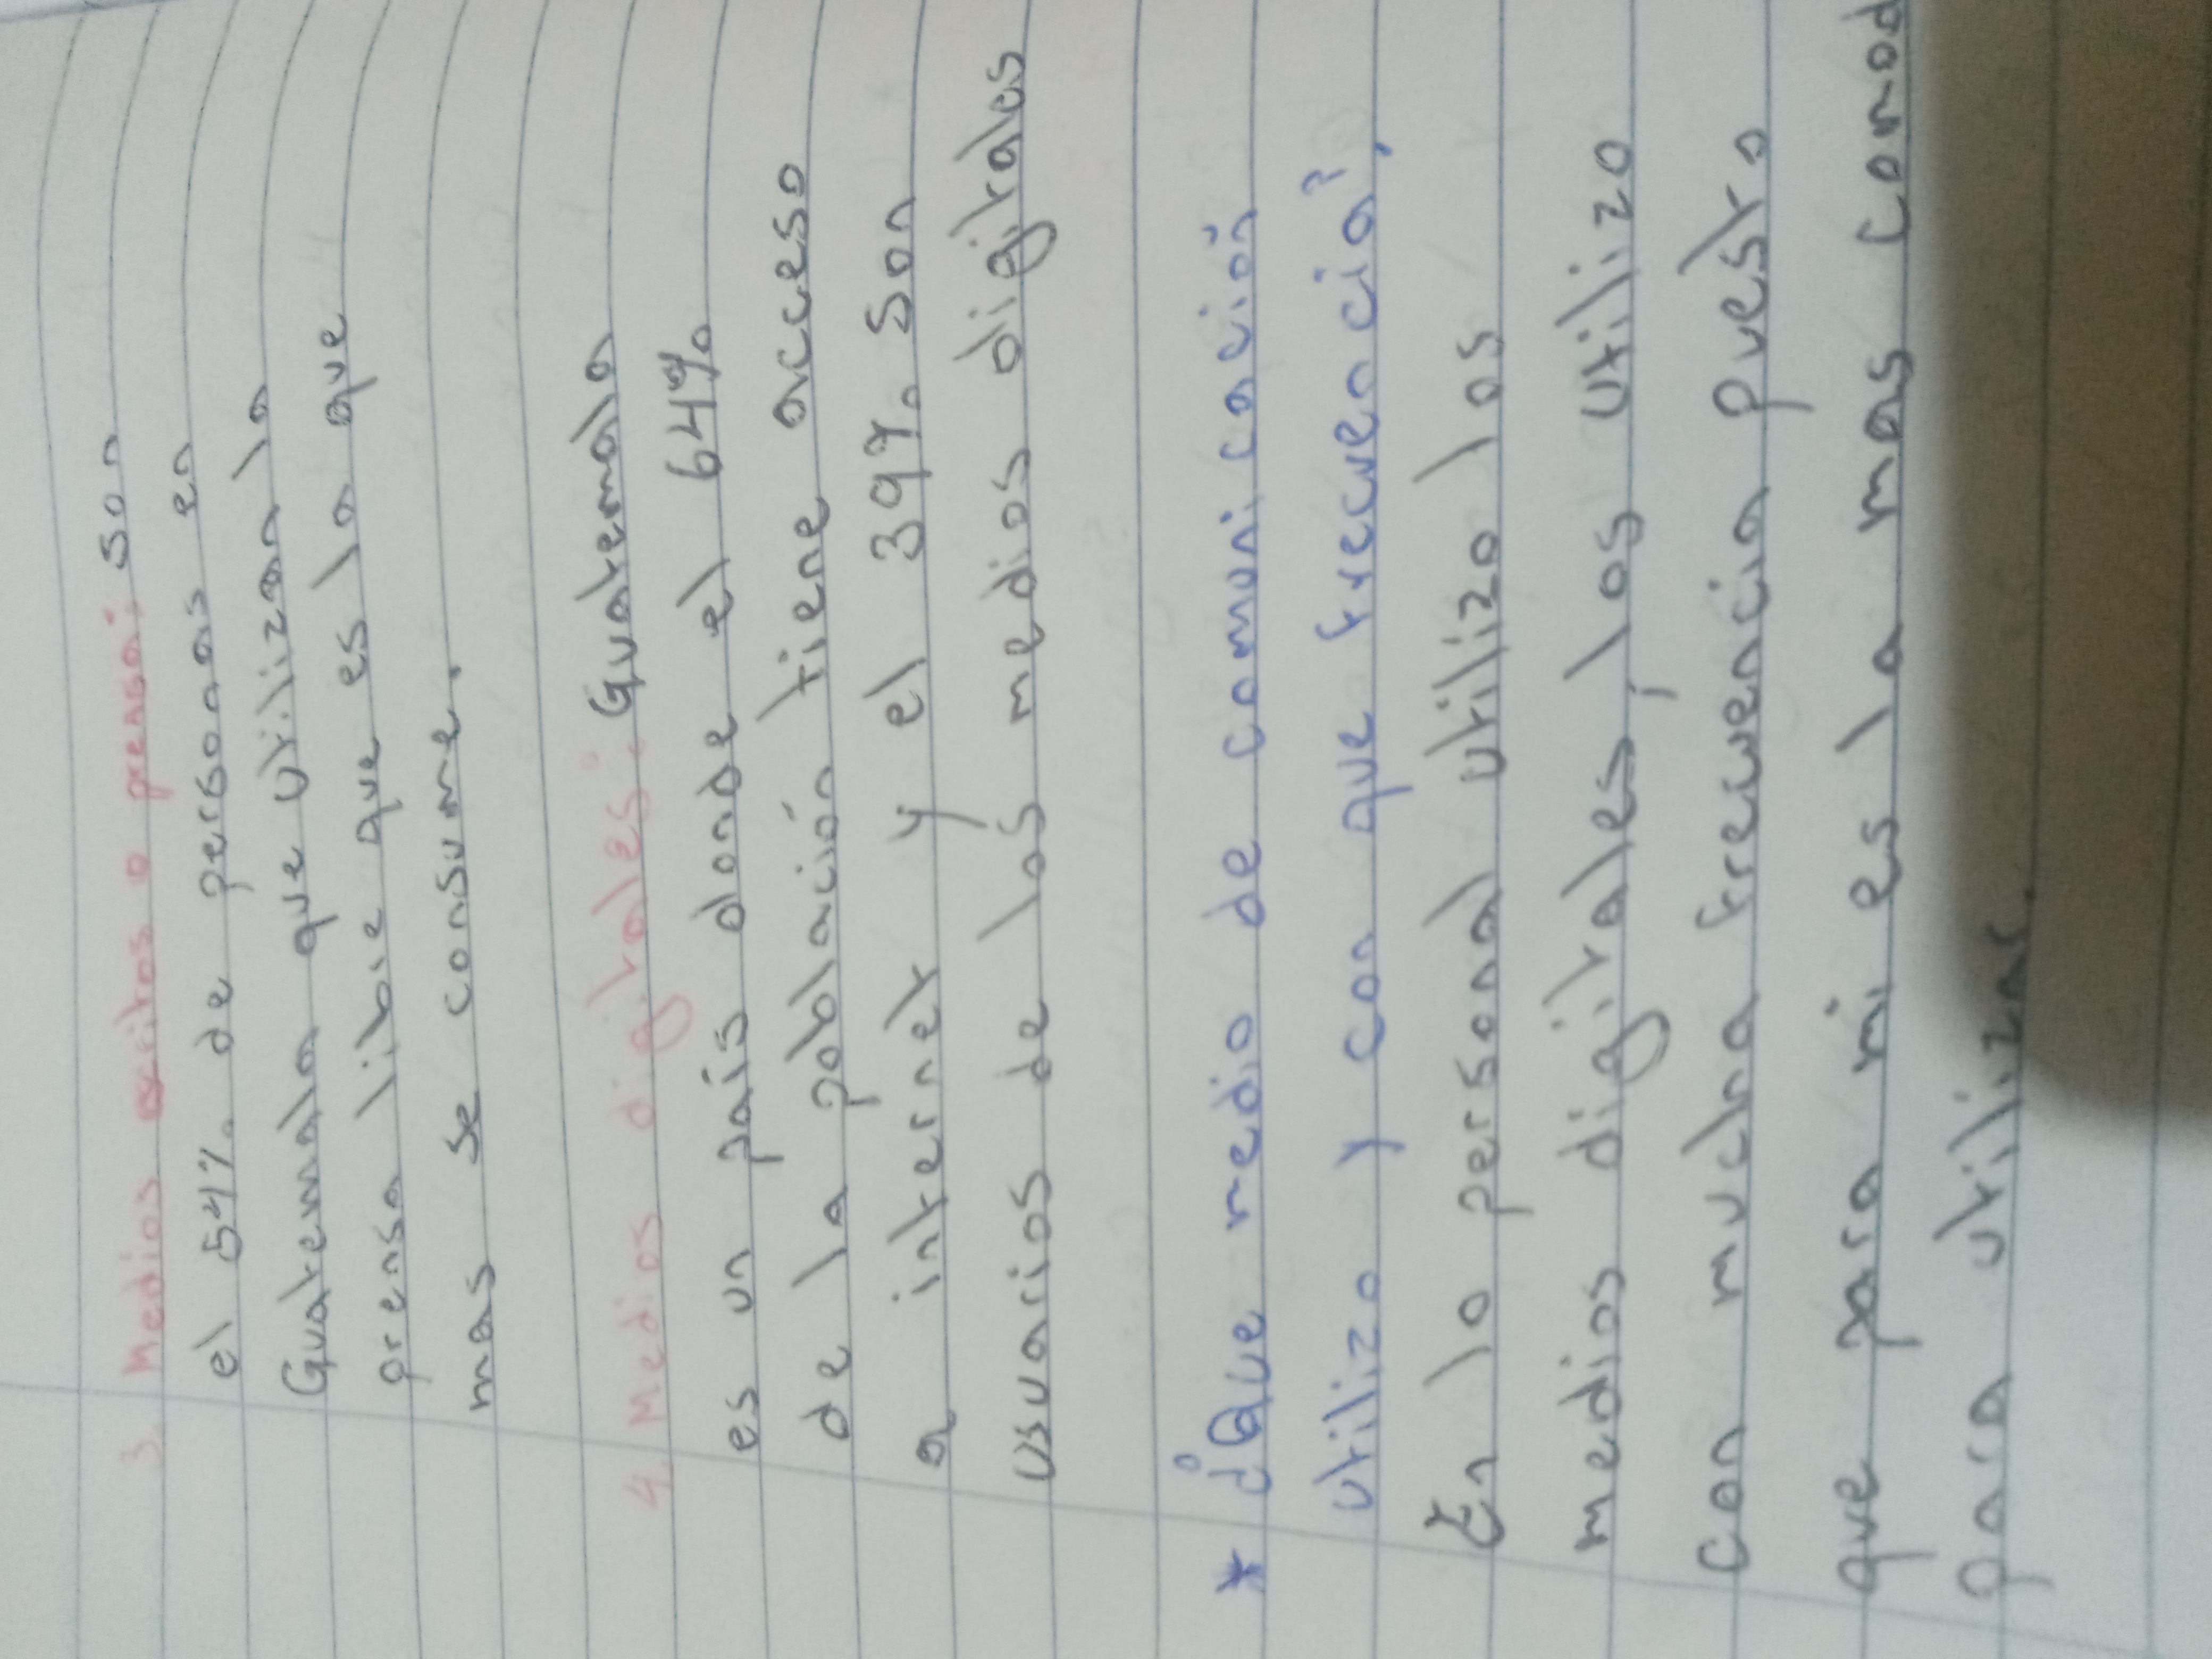 3. Medios escritos o prensa: son
el 54%. de personas en
Guatemala que utilizan la
prensa libre que es la que
mas se consume.
4. Medios digitales: Guatemala
es un país donde el 64%
de la población tiene acceso
a internet y el 39%. son
usuarios de los medios digitales
* ¿Que medio de comunicación
utilizo y con que frecuencia?
En lo personal utilizo los
medios digitales, los utilizo
con mucha frecuencia puesto
que para mi es la mas comod
para utilizar.